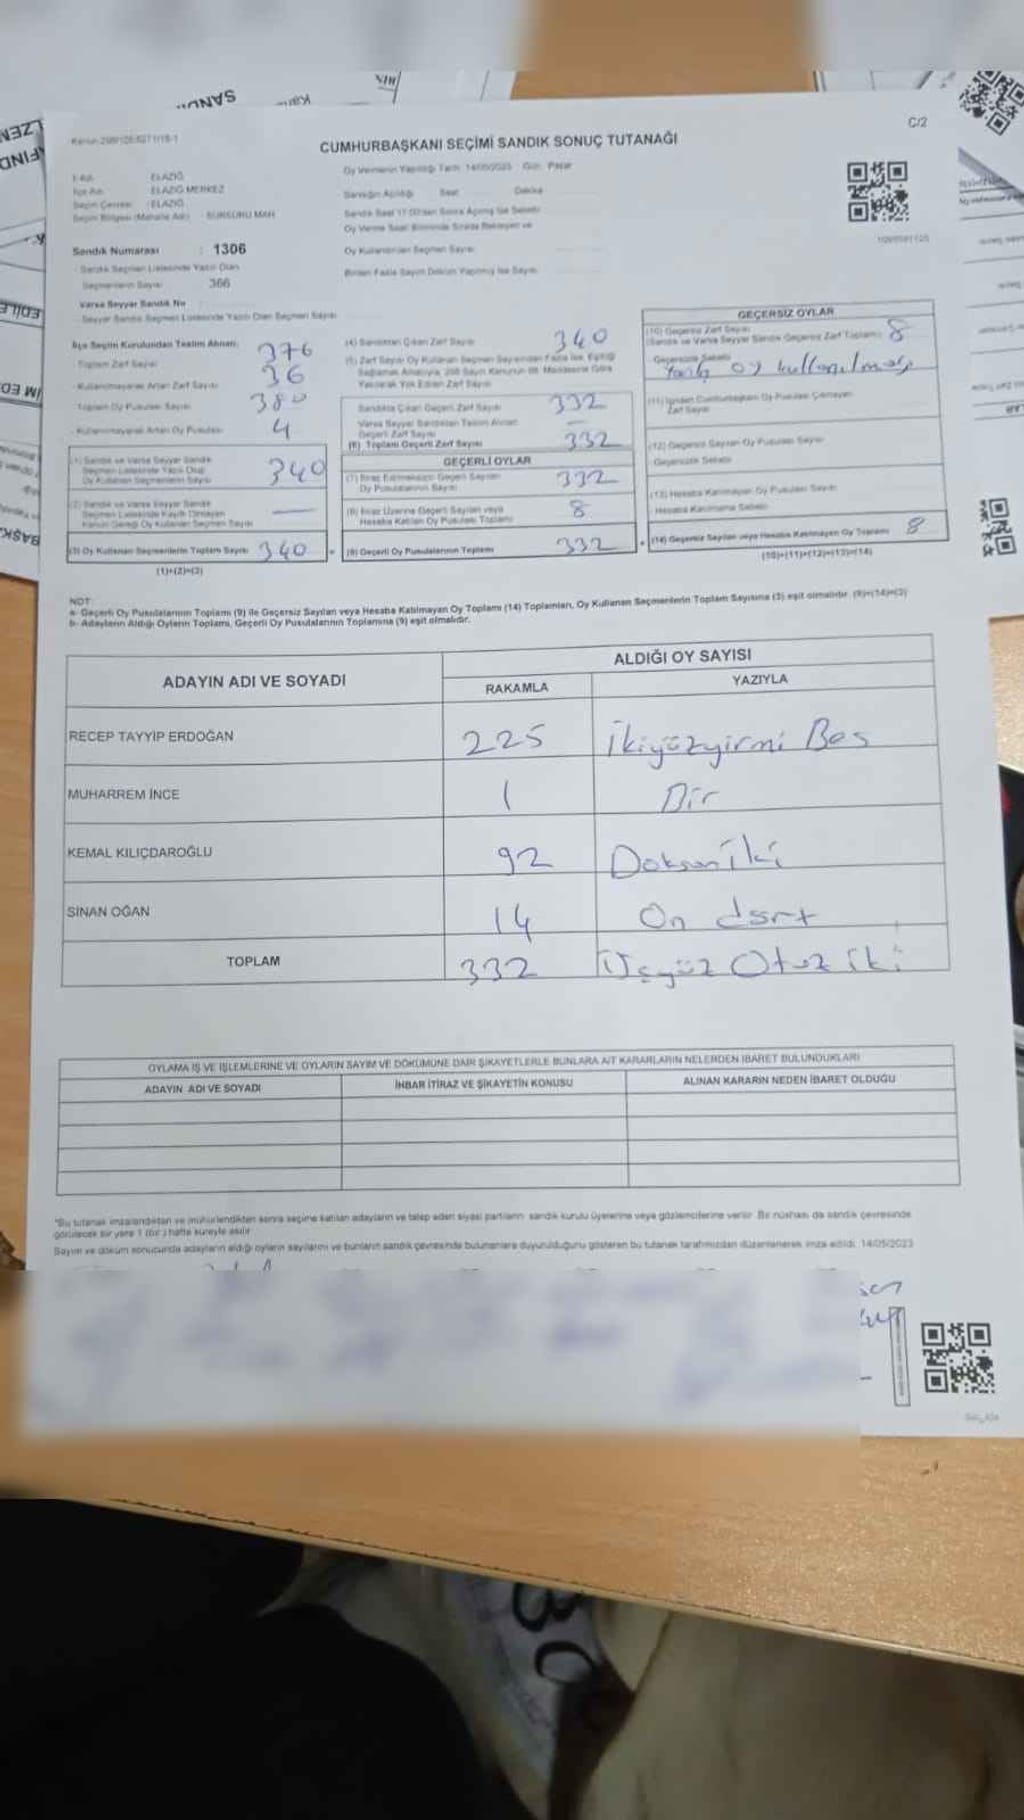 C/2
CUMHURBAŞKANI SEÇİMİ SANDIK SONUÇ TUTANAĞI
Oy Vermenin Yapıldığı Tarih: 14/05/2023 Gün: Pazar
ELAZIĞ
ELAZIĞ MERKEZ
ELAZIĞ
SÜRSÜRÜ MAH
Sandık Numarası : 1306
Sandık Seçmen Listesinde Yazılı Olan
Seçmenlerin Sayısı 366
Varsa Seyyar Sandık No
Oy Kullanılan Seçmen Sayısı
İlçe Seçim Kurulundan Teslim Alınan:
Toplam Zarf Sayısı 376
Kullanılmayarak Artan Zarf Sayısı 36
Toplam Oy Pusulası Sayısı 380
Kullanılmayarak Artan Oy Pusulası 4
(1) Sandık ve Varsa Seyyar Sandık
Seçmen Listesinde Yazılı Olup
Oy Kullanan Seçmenlerin Sayısı 340
(2) Sandık ve Varsa Seyyar Sandık
Seçmen Listesinde Kayıtlı Olmayan
Kanun Gereği Oy Kullanan Seçmen Sayısı —
(3) Oy Kullanan Seçmenlerin Toplam Sayısı 340
(1)+(2)=(3)
(4) Sandıktan Çıkan Zarf Sayısı 340
Sandıkta Çıkan Geçerli Zarf Sayısı 332
Varsa Seyyar Sandıktan Teslim Alınan
Geçerli Zarf Sayısı —
(6) Toplam Geçerli Zarf Sayısı 332
GEÇERLİ OYLAR
(7) İtiraz Edilmeksizin Geçerli Sayılan
Oy Pusulalarının Sayısı 332
(8) İtiraz Üzerine Geçerli Sayılan veya
Hesaba Katılan Oy Pusulası Toplamı 8
(9) Geçerli Oy Pusulalarının Toplamı 332
GEÇERSİZ OYLAR
(10) Geçersiz Zarf Sayısı
(Sandık ve Varsa Seyyar Sandık Geçersiz Zarf Toplamı) 8
Geçersizlik Sebebi
(12) Geçersiz Sayılan Oy Pusulası Sayısı
Geçersizlik Sebebi
(13) Hesaba Katılmayan Oy Pusulası Sayısı
Hesaba Katılmama Sebebi
(14) Geçersiz Sayılan veya Hesaba Katılmayan Oy Toplamı 8
(10)+(11)+(12)+(13)=(14)
NOT:
a- Geçerli Oy Pusulalarının Toplamı (9) ile Geçersiz Sayılan veya Hesaba Katılmayan Oy Toplamı (14) Toplamları, Oy Kullanan Seçmenlerin Toplam Sayısına (3) eşit olmalıdır. (9)+(14)=(3)
b- Adayların Aldığı Oyların Toplamı, Geçerli Oy Pusulalarının Toplamına (9) eşit olmalıdır.
ADAYIN ADI VE SOYADI
ALDIĞI OY SAYISI
RAKAMLA YAZIYLA
RECEP TAYYİP ERDOĞAN 225 İkiyüzyirmi Beş
MUHARREM İNCE 1 Bir
KEMAL KILIÇDAROĞLU 92 Doksan İki
SİNAN OĞAN 14 On dört
TOPLAM 332 Üçyüz Otuz iki
OYLAMA İŞ VE İŞLEMLERİNE VE OYLARIN SAYIM VE DÖKÜMÜNE DAİR ŞİKAYETLERLE BUNLARA AİT KARARLARIN NELERDEN İBARET BULUNDUKLARI
ADAYIN ADI VE SOYADI İHBAR İTİRAZ VE ŞİKAYETİN KONUSU ALINAN KARARIN NEDEN İBARET OLDUĞU
*Bu tutanak imzalandıktan ve mühürlendikten sonra seçime katılan adayların ve talep eden siyasi partilerin sandık kurulu üyelerine veya gözlemcilerine verilir. Bir nüshası da sandık çevresinde
görülecek bir yere 1 (bir) hafta süreyle asılır.
Sayım ve döküm sonucunda adayların aldığı oyların sayılarını ve bunların sandık çevresinde bulunanlara duyurulduğunu gösteren bu tutanak tarafımızdan düzenlenerek imza edildi. 14/05/2023